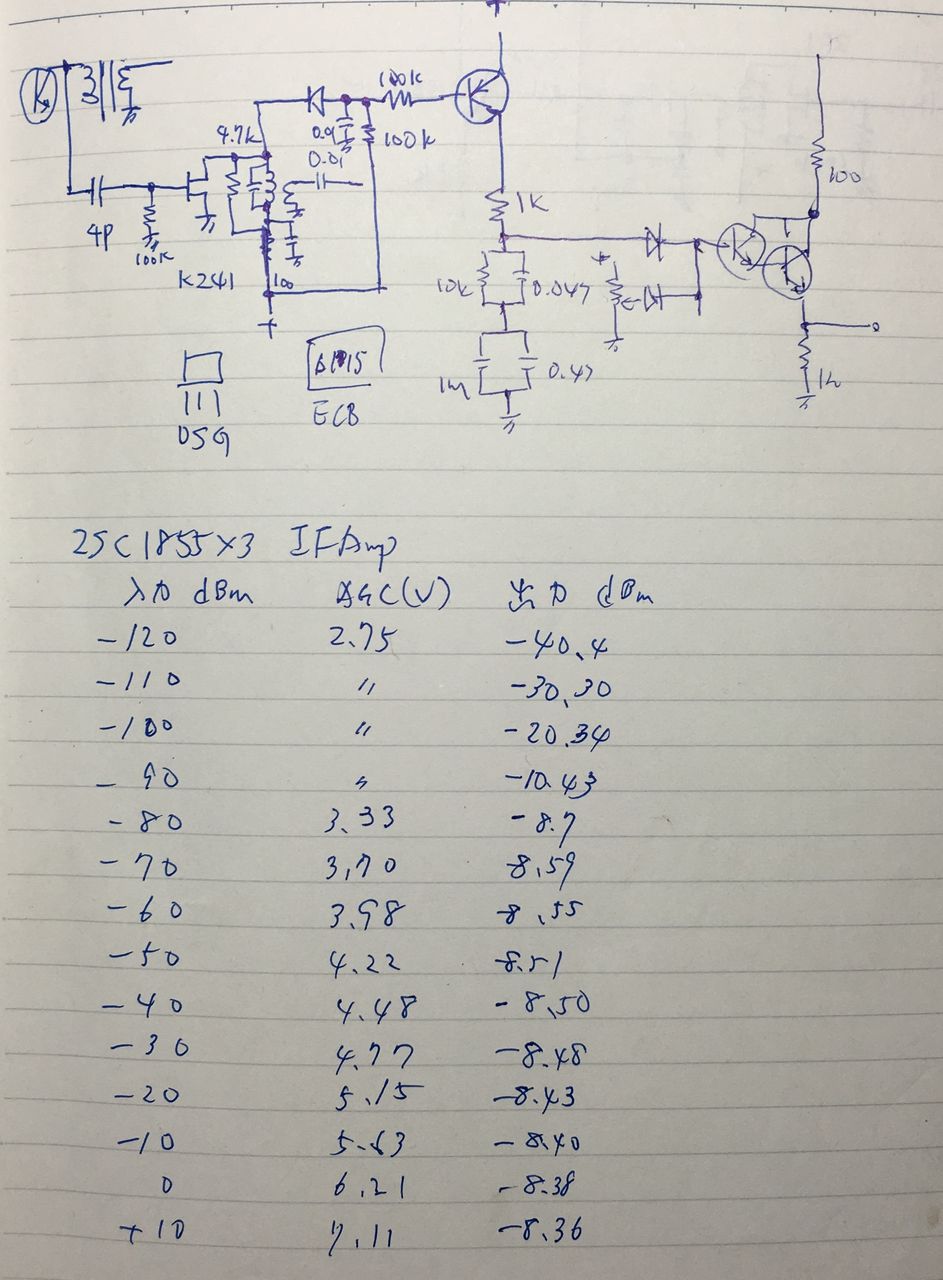 +
100k
4.7k
0.01
100k
0.01
100
4P
100k
1k
K241
100
10k
0.047
+
+
1μ
0.47
1k
A1015
DSG
ECB
2SC1855×3 IFAmp
入力 dBm AGC(V) 出力 dBm
-120 2.75 -40.4
-110 〃 -30.30
-100 〃 -20.34
-90 〃 -10.43
-80 3.33 -8.7
-70 3.70 -8.59
-60 3.98 -8.55
-50 4.22 -8.51
-40 4.48 -8.50
-30 4.77 -8.48
-20 5.15 -8.43
-10 5.63 -8.40
0 6.21 -8.38
+10 7.11 -8.36